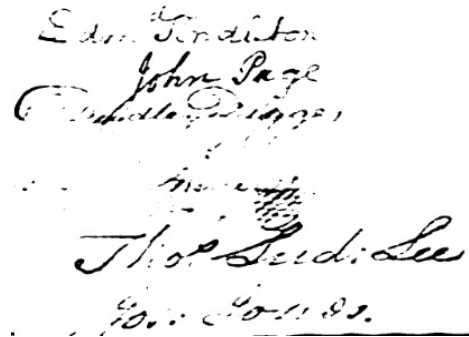 Edm Pendleton
John Page
Dudley Digges
Thoˢ Lud: Lee
Jos: Jones.